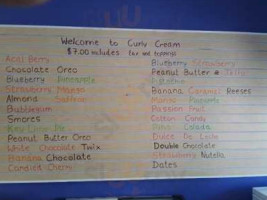 Welcome to Curly Cream
$7.00 includes tax and toppings
Acai Berry
Chocolate Oreo
Blueberry Pineapple
Strawberry Mango
Almond
Bubblegum
Smores
Key Lime Pie
Peanut Butter Oreo
White Chocolate Twix
Banana Chocolate
Candied Cherry
Blueberry Strawberry
Peanut Butter & Jelly
Banana Caramel Reeses
Mango Pineapple
Passion Fruit
Cotton Candy
Piña Colada
Dulce De Leche
Double Chocolate
Strawberry Nutella
Dates